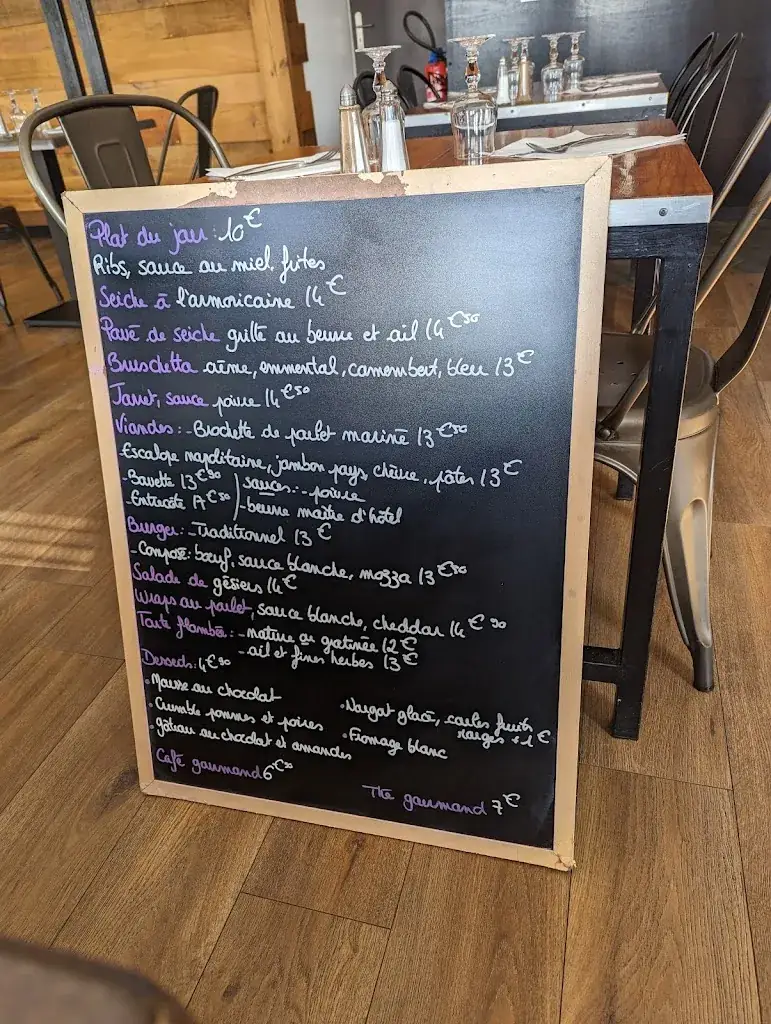 Plat du jour : 10€
Ribs, sauce au miel, frites
Seiche à l'armoricaine 14€
Pavé de seiche grillé au beurre et ail 14€50
Bruschetta crème, emmental, camembert, bleu 13€
Jarret, sauce poivre 14€50
Viandes : - Brochette de poulet mariné 13€50
Escalope napolitaine, jambon pays, chèvre, pâtes 13€
- Bavette 13€50 sauces : - poivre
- Entrecôte 17€50 - beurre maître d'hôtel
Burger : - Traditionnel 13€
- Composé : bœuf, sauce blanche, mozza 13€50
Salade de gésiers 14€
Wraps au poulet, sauce blanche, cheddar 14€50
Tarte flambée : - nature ou gratinée 12€
- ail et fines herbes 13€
Desserts : 4€90
• Mousse au chocolat
• Crumble pommes et poires
• gâteau au chocolat et amandes
• Nougat glacé, coulis fruits
rouges +1€
• Fromage blanc
Café gourmand 6€50
Thé gourmand 7€